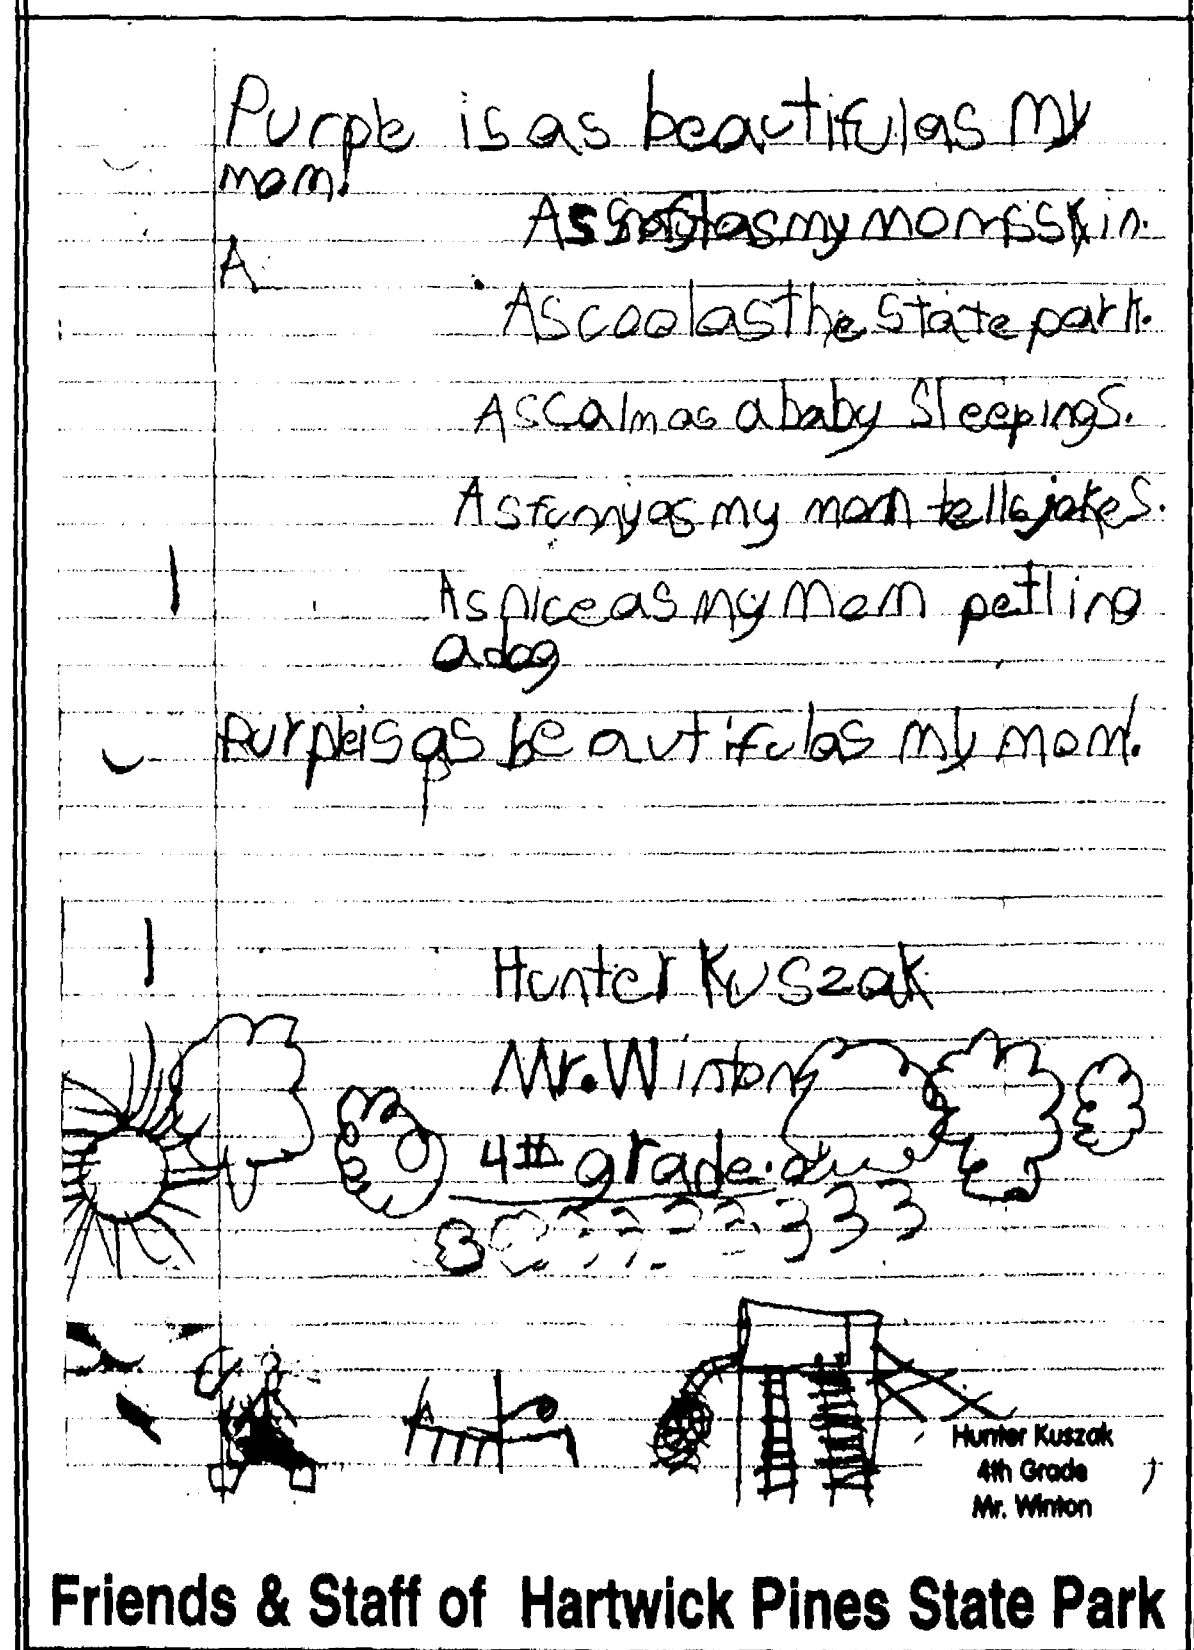 Purple is as beautiful as my
mom.
As soft as my moms skin.
A
As cool as the state park.
As calm as a baby sleepings.
As funny as my mom tells jokes.
As nice as my mom petting
a dog
Purple is as beautiful as my mom.
Hunter Kuszak
Mr. Winton
4th grade.
Hunter Kuszak
4th Grade
Mr. Winton
Friends & Staff of Hartwick Pines State Park